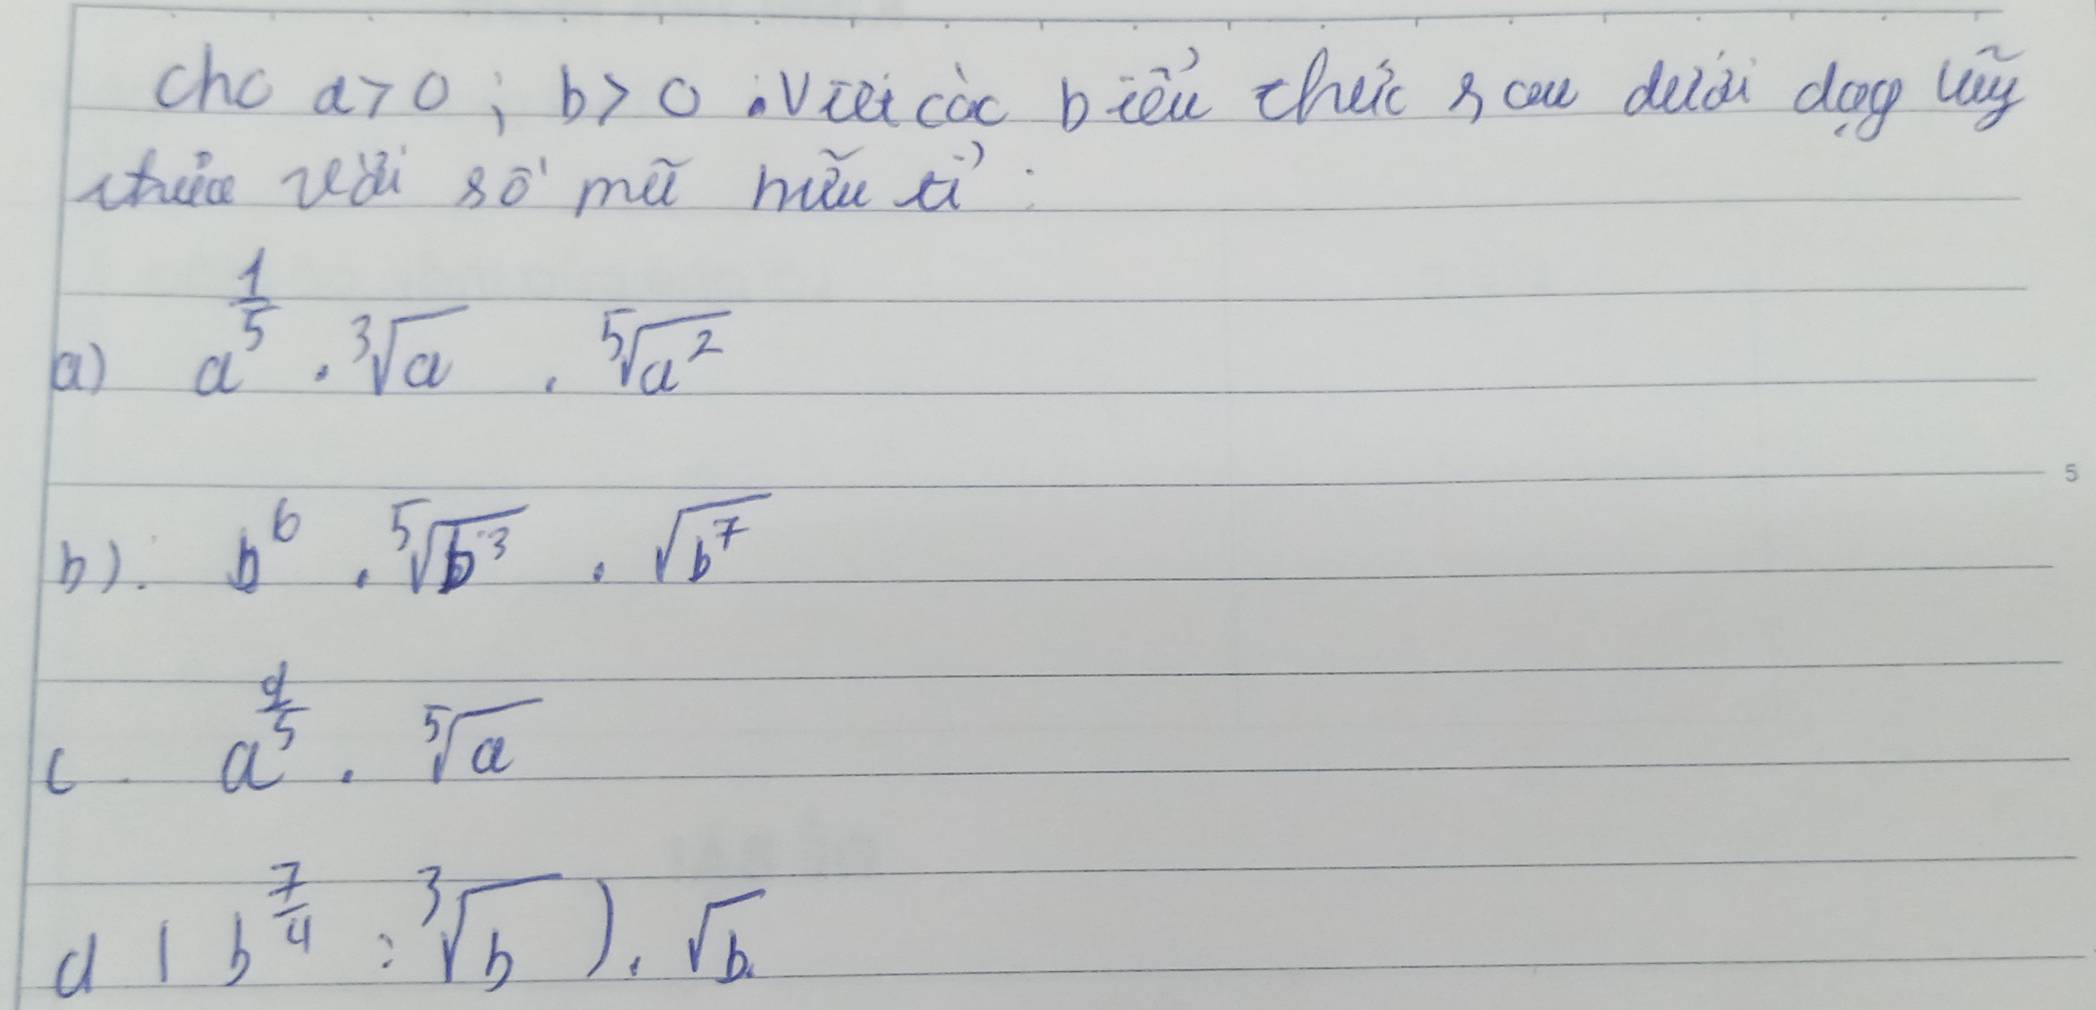 Cho a > 0 ; b > 0 . Viết các biểu thức sau dưới dạng lũy
thừa với số mũ hữu tỉ :
a) a^{\frac{1}{5}} . \sqrt[3]{a} . \sqrt[5]{a^2}
5
b). b^6 . \sqrt[5]{b^3} . \sqrt{b^7}
c. a . \sqrt[5]{a}
d ( b^{\frac{7}{4}} : \sqrt[3]{b} ) . \sqrt{b}.